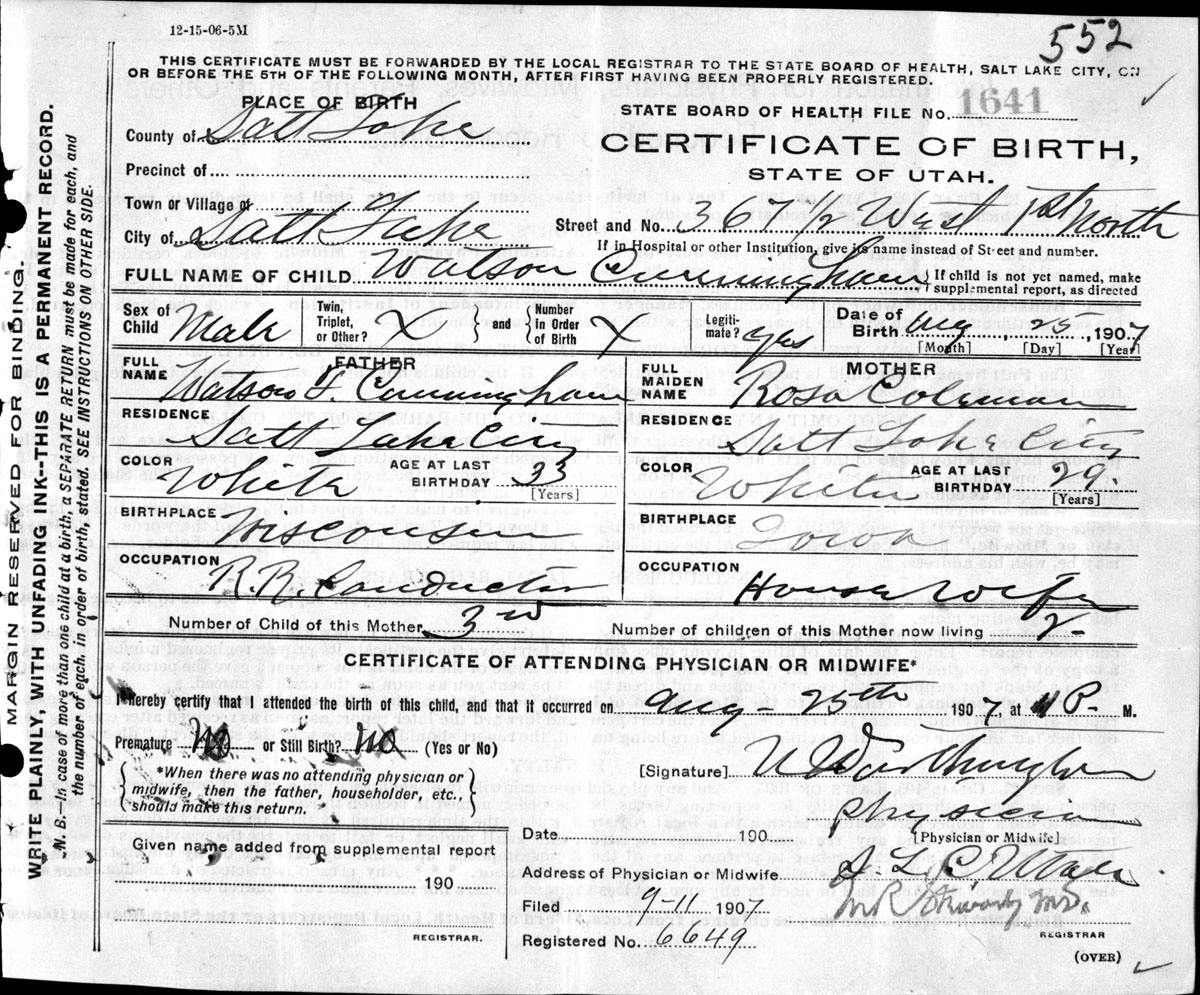 12-15-06-5M
552
THIS CERTIFICATE MUST BE FORWARDED BY THE LOCAL REGISTRAR TO THE STATE BOARD OF HEALTH, SALT LAKE CITY, ON
OR BEFORE THE 5TH OF THE FOLLOWING MONTH, AFTER FIRST HAVING BEEN PROPERLY REGISTERED.
PLACE OF BIRTH
STATE BOARD OF HEALTH FILE No. 1641
County of Salt Lake
CERTIFICATE OF BIRTH,
Precinct of
STATE OF UTAH.
Town or Village of
Street and No. 367½ West 1st North
City of Salt Lake
If in Hospital or other Institution, give its name instead of Street and number.
FULL NAME OF CHILD Watson Cunningham { If child is not yet named, make
supplemental report, as directed
Sex of Child Male Twin, Triplet, or Other? X } and { Number in Order of Birth X Legiti-mate? yes Date of Birth Aug 25, 1907
[Month] [Day] [Year]
FATHER
MOTHER
FULL NAME Watson F. Cunningham
FULL MAIDEN NAME Rosa Coleman
RESIDENCE Salt Lake City
RESIDENCE Salt Lake City
COLOR White AGE AT LAST BIRTHDAY 33 [Years]
COLOR White AGE AT LAST BIRTHDAY 29 [Years]
BIRTHPLACE Wisconsin
BIRTHPLACE Iowa
OCCUPATION R.R. Conductor
OCCUPATION House Wife
Number of Child of this Mother 3rd
Number of children of this Mother now living 2
CERTIFICATE OF ATTENDING PHYSICIAN OR MIDWIFE*
I hereby certify that I attended the birth of this child, and that it occurred on Aug- 25th 1907 at P. M.
Premature No or Still Birth? No (Yes or No)
{ *When there was no attending physician or midwife, then the father, householder, etc., should make this return. }
[Signature] Worthington
Physician
[Physician or Midwife]
Date 190
Given name added from supplemental report
190
Address of Physician or Midwife S. L. C. Utah
Filed 9-11 1907
Registered No. 6649
REGISTRAR.
REGISTRAR
(OVER)
MARGIN RESERVED FOR BINDING.
WRITE PLAINLY, WITH UNFADING INK--THIS IS A PERMANENT RECORD.
N. B.--In case of more than one child at a birth, a SEPARATE RETURN must be made for each, and
the number of each, in order of birth, stated. SEE INSTRUCTIONS ON OTHER SIDE.